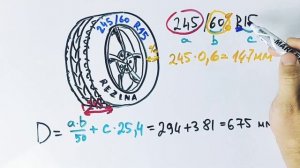 245/60 R15
a b c
245/60 R15
245·0,6=147мм
REZINA
D = a·b/50 + c·25,4 = 294+381 = 675 мм